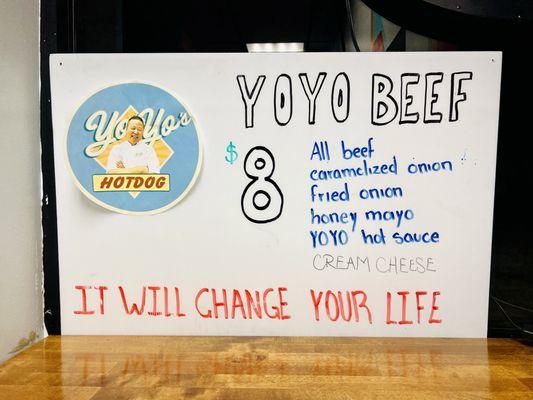 YoYo's
HOTDOG
YOYO BEEF
$8
All beef
caramelized onion
fried onion
honey mayo
YOYO hot sauce
CREAM CHEESE
IT WILL CHANGE YOUR LIFE